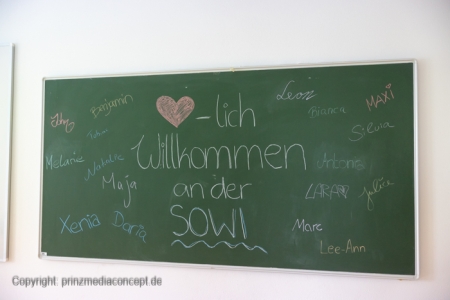 Benjamin
Leon
Bianca
MAXI
♥-lich
Silvia
Willkommen
Melanie
Natalie
Antonia
Maja
an der
Julia
Xenia
Daria
SOWI
Marc
Lee-Ann
Copyright: prinzmediaconcept.de